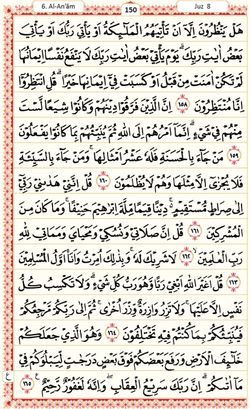 6. Al-An'ām
150
Juz 8
هَلْ يَنْظُرُوْنَ اِلَّآ اَنْ تَاْتِيَهُمُ الْمَلٰٓئِكَةُ اَوْ يَاْتِيَ رَبُّكَ اَوْ يَاْتِيَ
بَعْضُ اٰيٰتِ رَبِّكَ ۗ يَوْمَ يَاْتِيْ بَعْضُ اٰيٰتِ رَبِّكَ لَا يَنْفَعُ نَفْسًا اِيْمَانُهَا
لَمْ تَكُنْ اٰمَنَتْ مِنْ قَبْلُ اَوْ كَسَبَتْ فِيْٓ اِيْمَانِهَا خَيْرًا ۗ قُلِ انْتَظِرُوْٓا
اِنَّا مُنْتَظِرُوْنَ ١٥٨ اِنَّ الَّذِيْنَ فَرَّقُوْا دِيْنَهُمْ وَكَانُوْا شِيَعًا لَّسْتَ
مِنْهُمْ فِيْ شَيْءٍ ۗ اِنَّمَآ اَمْرُهُمْ اِلَى اللّٰهِ ثُمَّ يُنَبِّئُهُمْ بِمَا كَانُوْا يَفْعَلُوْنَ
١٥٩ مَنْ جَآءَ بِالْحَسَنَةِ فَلَهٗ عَشْرُ اَمْثَالِهَا ۚ وَمَنْ جَآءَ بِالسَّيِّئَةِ
فَلَا يُجْزٰٓى اِلَّا مِثْلَهَا وَهُمْ لَا يُظْلَمُوْنَ ١٦٠ قُلْ اِنَّنِيْ هَدٰىنِيْ رَبِّيْٓ
اِلٰى صِرَاطٍ مُّسْتَقِيْمٍ ۚ دِيْنًا قِيَمًا مِّلَّةَ اِبْرٰهِيْمَ حَنِيْفًا ۚ وَمَا كَانَ مِنَ
الْمُشْرِكِيْنَ ١٦١ قُلْ اِنَّ صَلَاتِيْ وَنُسُكِيْ وَمَحْيَايَ وَمَمَاتِيْ لِلّٰهِ
رَبِّ الْعٰلَمِيْنَ ١٦٢ لَا شَرِيْكَ لَهٗ ۚ وَبِذٰلِكَ اُمِرْتُ وَاَنَا۠ اَوَّلُ الْمُسْلِمِيْنَ
١٦٣ قُلْ اَغَيْرَ اللّٰهِ اَبْغِيْ رَبًّا وَّهُوَ رَبُّ كُلِّ شَيْءٍ ۗ وَلَا تَكْسِبُ كُلُّ
نَفْسٍ اِلَّا عَلَيْهَا ۚ وَلَا تَزِرُ وَازِرَةٌ وِّزْرَ اُخْرٰى ۚ ثُمَّ اِلٰى رَبِّكُمْ مَّرْجِعُكُمْ
فَيُنَبِّئُكُمْ بِمَا كُنْتُمْ فِيْهِ تَخْتَلِفُوْنَ ١٦٤ وَهُوَ الَّذِيْ جَعَلَكُمْ
خَلٰٓئِفَ الْاَرْضِ وَرَفَعَ بَعْضَكُمْ فَوْقَ بَعْضٍ دَرَجٰتٍ لِّيَبْلُوَكُمْ فِيْ
مَآ اٰتٰىكُمْ ۗ اِنَّ رَبَّكَ سَرِيْعُ الْعِقَابِ ۖ وَاِنَّهٗ لَغَفُوْرٌ رَّحِيْمٌ ١٦٥